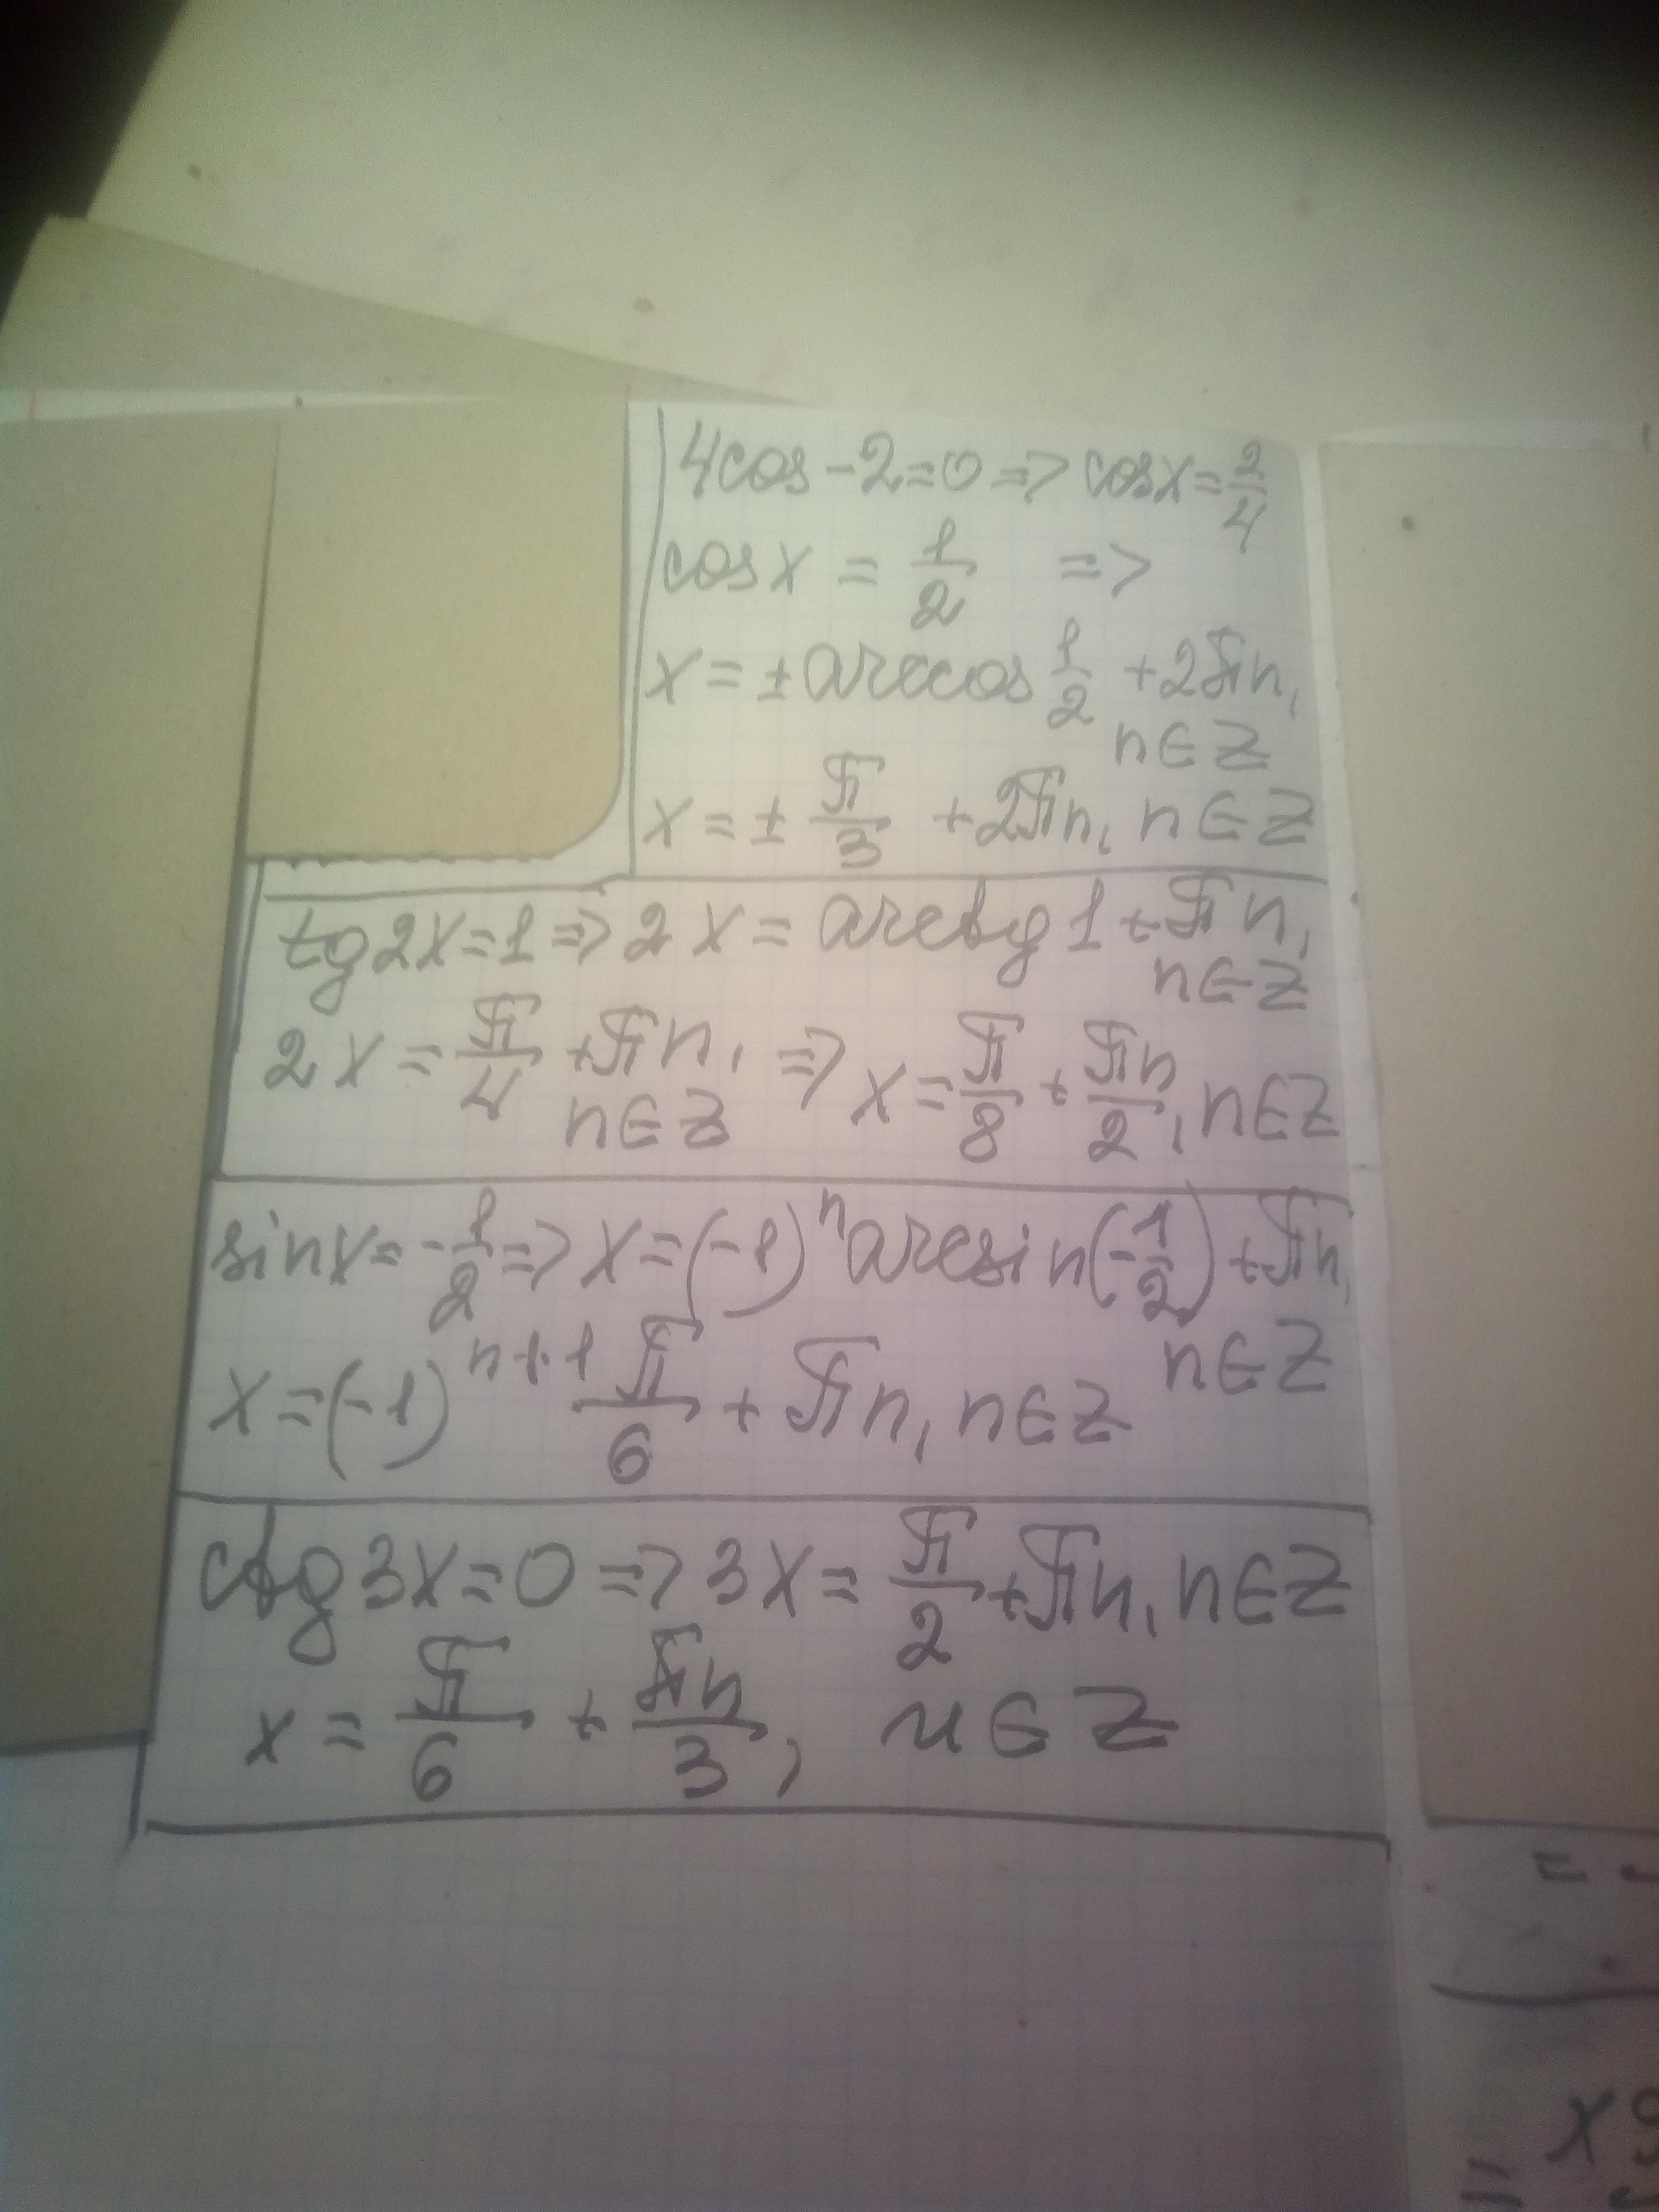 4cos - 2 = 0 => cosx = 2/4
cosx = 1/2 =>
x = ± arccos 1/2 + 2πn,
n ∈ Z
x = ± π/3 + 2πn, n ∈ Z
tg2x = 1 => 2x = arctg1 + πn,
n ∈ Z
2x = π/4 + πn, => x = π/8 + πn/2, n ∈ Z
n ∈ Z
sinx = -1/2 => x = (-1)^n arcsin(-1/2) + πn,
n ∈ Z
x = (-1)^(n+1) π/6 + πn, n ∈ Z
ctg3x = 0 => 3x = π/2 + πn, n ∈ Z
x = π/6 + πn/3, n ∈ Z
=
= x